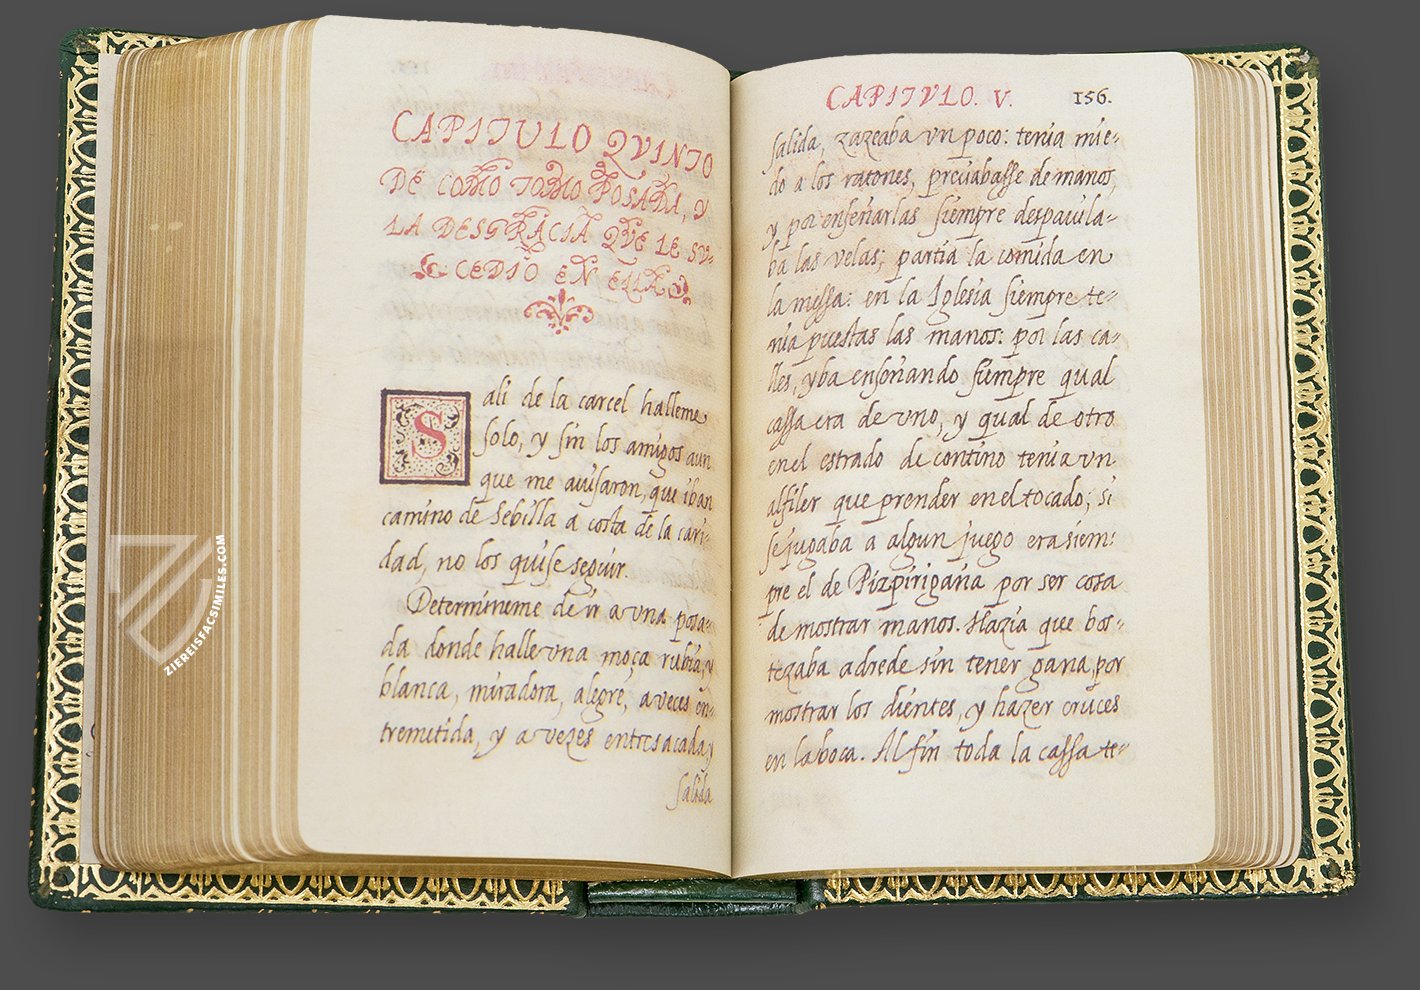 CAPITULO QVINTO
DE COMO TOMO POSADA, Y
LA DESGRACIA QVE LE SV-
CEDIO EN ELLA
Sali de la carcel halleme
solo, y sin los amigos aun
que me auisaron, que iban
camino de Sebilla a costa de la cari-
dad, no los quise seguir.
Determineme de ir a vna posa-
da donde halle vna moça rubia, y
blanca, miradora, alegre, a veces en-
tremetida, y a vezes entresacada, y
salida
CAPITVLO. V. 156.
salida, zazeaba vn poco: tenia mie-
do a los ratones, preciabasse de manos,
y por enseñarlas siempre despauila-
ba las velas; partia la comida en
la messa: en la Iglesia siempre te-
nia puestas las manos: por las ca-
lles, yba enseñando siempre qual
cassa era de vno, y qual de otro
en el estrado de contino tenia vn
alfiler que prender en el tocado; si
se jugaba a algun juego era siem-
pre el de Pizpirigaña por ser cosa
de mostrar manos. Hazia que bos-
tezaba adrede sin tener gana, por
mostrar los dientes, y hazer cruces
en la boca. Al fin toda la cassa te-
ZIEREISFACSIMILES.COM